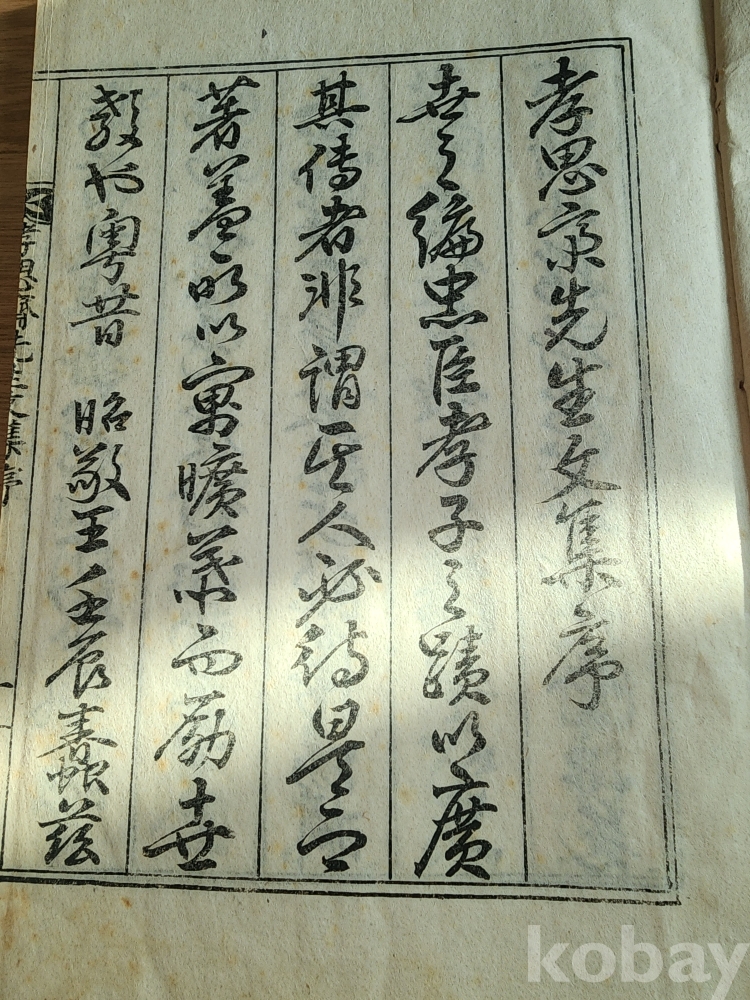 孝思齋先生文集序
世之編忠臣孝子之蹟以廣
其傳者非謂其人必待是而
著盖所以寓曠慕而勵世
敎也粤昔 昭敬王壬辰蠢玆
孝思齋先生文集序
kobay